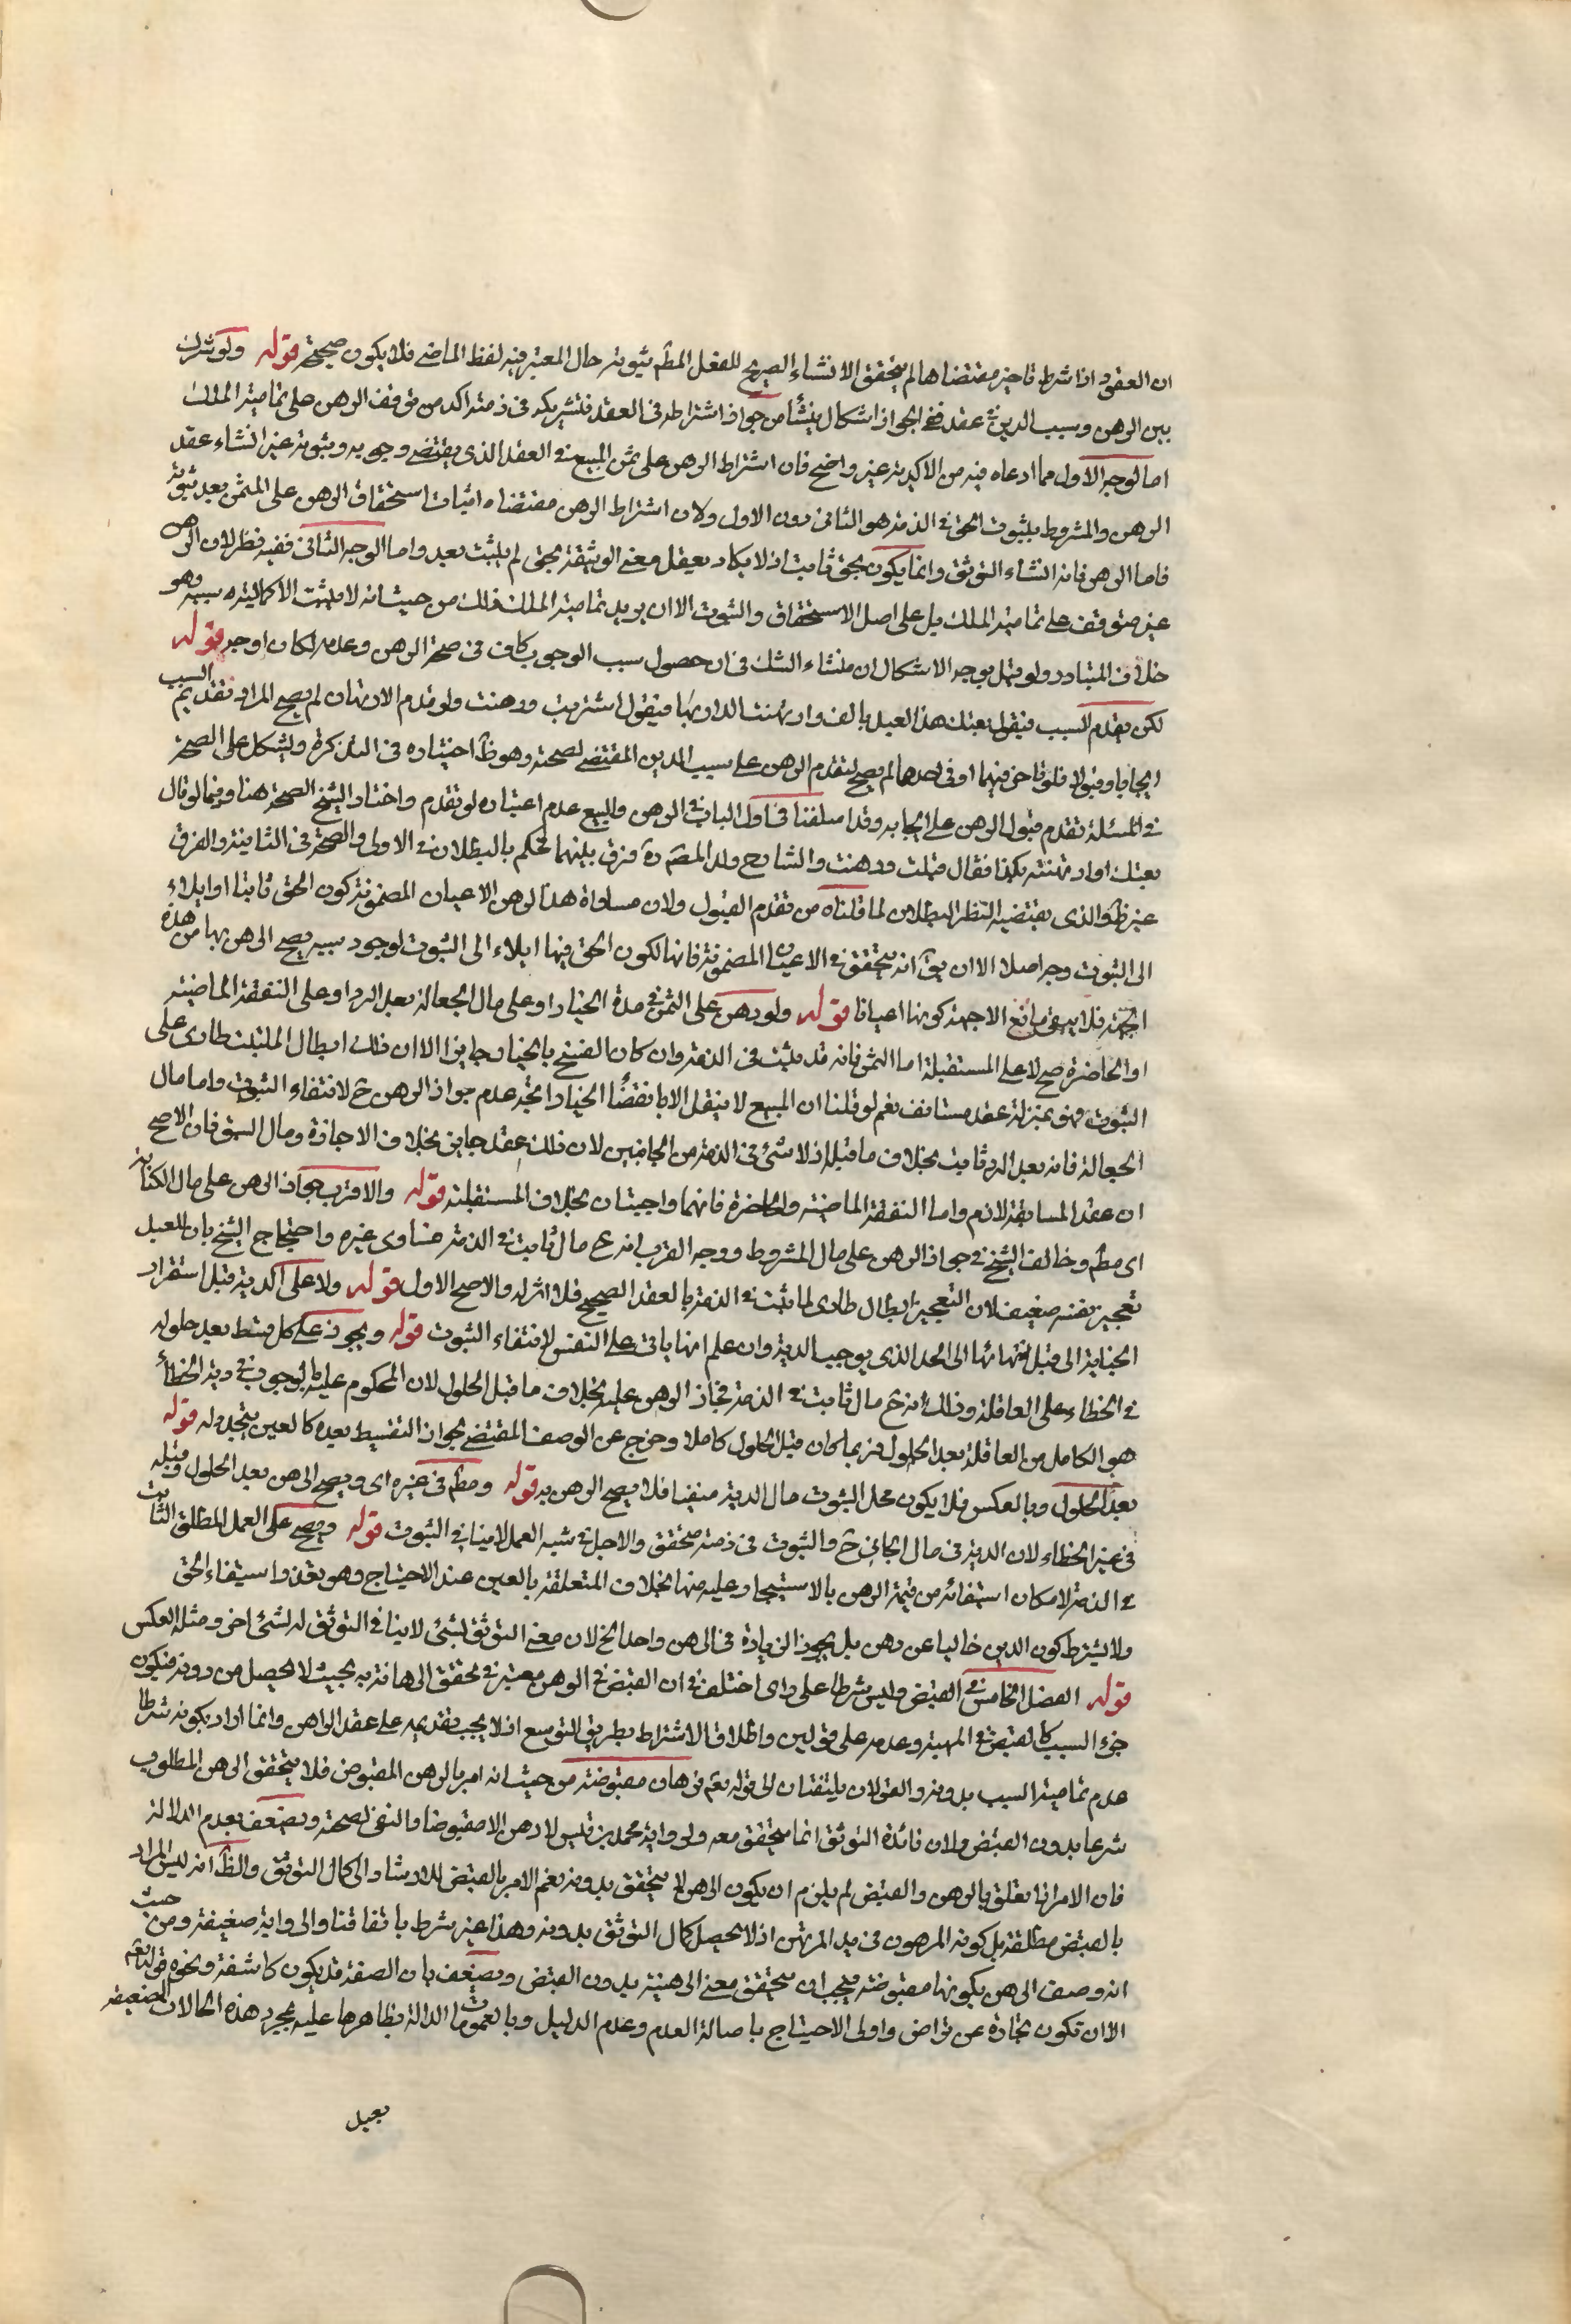 ان العقود اذا شرط تاخير مقتضاها لم يتحقق الانشاء الصريح للفعل المطم ثبوته حال المعتبر فيه لفظ الماضي فلا يكون صحيحة قوله ولو شرك
بين الرهن وسبب الدين في عقد ففي الجواز اشكال ينشأ من جواز اشتراطه في العقد فتشريكه في ذمته اكد من توقف الرهن على تمامية الملك
اما لوجه الاول مما ادعاه فيه من الاكدية غير واضح فان اشتراط الرهن على ثمن المبيع في العقد الذي يقتضي وجوبه وثبوته غير انشاء عقد
الرهن والمشروط بثبوت الحق في الذمة هو الثاني دون الاول ولان اشتراط الرهن مقتضاه اثبات استحقاق الرهن على المثمن بعد ثبوته
فاما الرهن فانه انشاء التوثق وانما يكون بحق ثابت اذ لا يكاد يعقل معنى الوثيقة بحق لم يثبت بعد واما الوجه الثاني ففيه نظر لان الرهن
غير متوقف على تمامية الملك بل على اصل الاستحقاق والثبوت الا ان يريد تمامية الملك ذلك من حيث انه لا يثبت الا بكمالية سببه وهو
خلاف المتبادر ولو قيل بوجه الاشكال ان منشاء الشك في ان حصول سبب الوجوب كاف في صحة الرهن وعدمه لكان اوجه قوله
لكن يقدم السبب فيقول بعتك هذا العبد بالف وارتهنت الدار بها فيقول اشتريت ورهنت ولو قدم الارتهان لم يصح المراد تقديم السبب
ايجابا وقبولا فلو تاخر فيهما او في احدهما لم يصح لتقدم الرهن على سبب الدين المقتضي لصحته وهو ظ اختياره في التذكرة ويشكل على الصحة
في المسئلة تقدم قبول الرهن على ايجابه وقد اسلفنا في اول الباب في الرهن والبيع عدم اعتباره لو تقدم واختار الشيخ الصحة هنا وفيما لو قال
بعتك او ارتهنته بكذا فقال قبلت ورهنت والشارح ولد المصـ ره فرق بينهما لحكم بالبطلان في الاولى والصحة في الثانية والفرق
غير ظ والذي يقتضيه النظر البطلان لما قلناه من تقدم القبول ولان مساواة هذا لرهن الاعيان المضمونة كون الحق ثابتا او ايلاء
الى الثبوت وجه اصلا الا ان يق انه يتحقق في الاعيان المضمونة فانها لكون الحق فيها ايلاء الى الثبوت لوجود سببه يصح الرهن بها من هذه
الجهة فلا يبقى مانع الا جهة كونها اعيانا قوله ولو رهن على الثمن في مدة الخيار او على مال الجعالة بعد الرد او على النفقة الماضية
او الحاضرة صح لا على المستقبلة اما الثمن فانه قد يثبت في الذمة وان كان الفسخ بالخيار جايزا الا ان ذلك ابطال الملتبك طارى على
الثبوت فهو بمنزلة عقد مستانف نعم لو قلنا ان المبيع لا ينتقل الا بانقضاء الخيار اتجه عدم جواز الرهن ح لانتفاء الثبوت واما مال
الجعالة فانه بعد الرد ثابت بخلاف ما قبله اذ لا شئ في الذمة من الجانبين لان ذلك عقد جايز بخلاف الاجازة ومال السبق فان الاصح
ان عقد المسابقة لازم واما النفقة الماضية والحاضرة فانهما واجبتان بخلاف المستقبلة قوله والاقرب جواز الرهن على مال الكتابة
اى مطم وخالف الشيخ في جواز الرهن على مال المشروط ووجه القرب انه ع مال ثابت في الذمة فساوى غيره واحتجاج الشيخ بان للعبد
تعجيز نفسه ضعيف لان التعجيز ابطال طارى لما ثبت في الذمة بالعقد الصحيح فلا اثر له والاصح الاول قوله ولا على الدية قبل استقرار
الجناية الى قبل انتهائها الى الحد الذي يوجب الدية وان علم انها ياتى على النفس لانتفاء الثبوت قوله ويجوز على كل قسط بعد حلوله
في الخطاء على العاقلة وذلك انه ح مال ثابت في الذمة فجاز الرهن عليه بخلاف ما قبل الحلول لان المحكوم عليه بالوجوب في دية الخطأ
هو الكامل من العاقلة بعد الحلول فربما كان قبل الحلول كاملا وخرج عن الوصف المقتضي لجواز التقسيط بعده كالعين يتجدد له قوله
بعد الحلول وبالعكس فلا يكون محل الثبوت مال الدية منفيا فلا يصح الرهن به قوله ومطم في غيره اى ويصح الرهن بعد الحلول وقبله
في غير الخطاء لان الدية في مال الجاني ح والثبوت في ذمته متحقق والاجل في شبه العمد لا ينافي الثبوت قوله ويصح على العمل المطلق الثابت
في الذمة لامكان استيفائه من قيمة الرهن بالاستيجار وعليه منها بخلاف المتعلقة بالعين عند الاحتياج وهو تعذر استيفاء الحق
ولا يشترط كون الدين خاليا عن رهن بل يجوز الزيادة في الرهن واحد الخ لان معنى التوثق بشئ لا ينافي التوثق له لشئ اخر ومثله العكس
قوله الفصل الخامس في القبض وليس شرطا على راى اختلف في ان القبض في الرهن معتبر في تحقق الرهانة به بحيث لا يحصل من دونه فيكون
جزء السبب كالقبض في الهبة وعدمه على قولين واطلاق الاشتراط بطريق التوسع اذ لا يجب تقديمه على عقد الراهن وانما اراد بكونه شرطا
عدم تمامية السبب بدونه والقولان يلتفتان الى قوله تعم فرهان مقبوضة من حيث انه امر بالرهن المقبوض فلا يتحقق الرهن المطلوب
شرعا بدون القبض ولان فائدة التوثق انما يتحقق معه ولرواية محمد بن قيس لا رهن الا مقبوضا والنفي لصحة ويضعف بعدم الدلالة
فان الامر انما تعلق بالرهن والقبض لم يلزم ان يكون الرهن لا يتحقق بدونه نعم الامر بالقبض للارشاد الى كمال التوثق والظ انه ليس المراد
بالقبض مطلقة بل كونه المرهون في يد المرتهن اذ لا يحصل كمال التوثق بدونه وهذا غير شرط باتفاقنا والرواية ضعيفة ومن حيث
انه وصف الرهن بكونها مقبوضة فيجب ان يتحقق معنى الرهنية بدون القبض ويضعف بان الصفة قد يكون كاشفة ونحوه قوله تعم
الا ان تكون تجارة عن تراض واولى الاحتياج باصالة العدم وعدم الدليل وبالعمومات الدالة بظاهرها عليه بمجرد هذه الحالات الضعيفة
بعيد